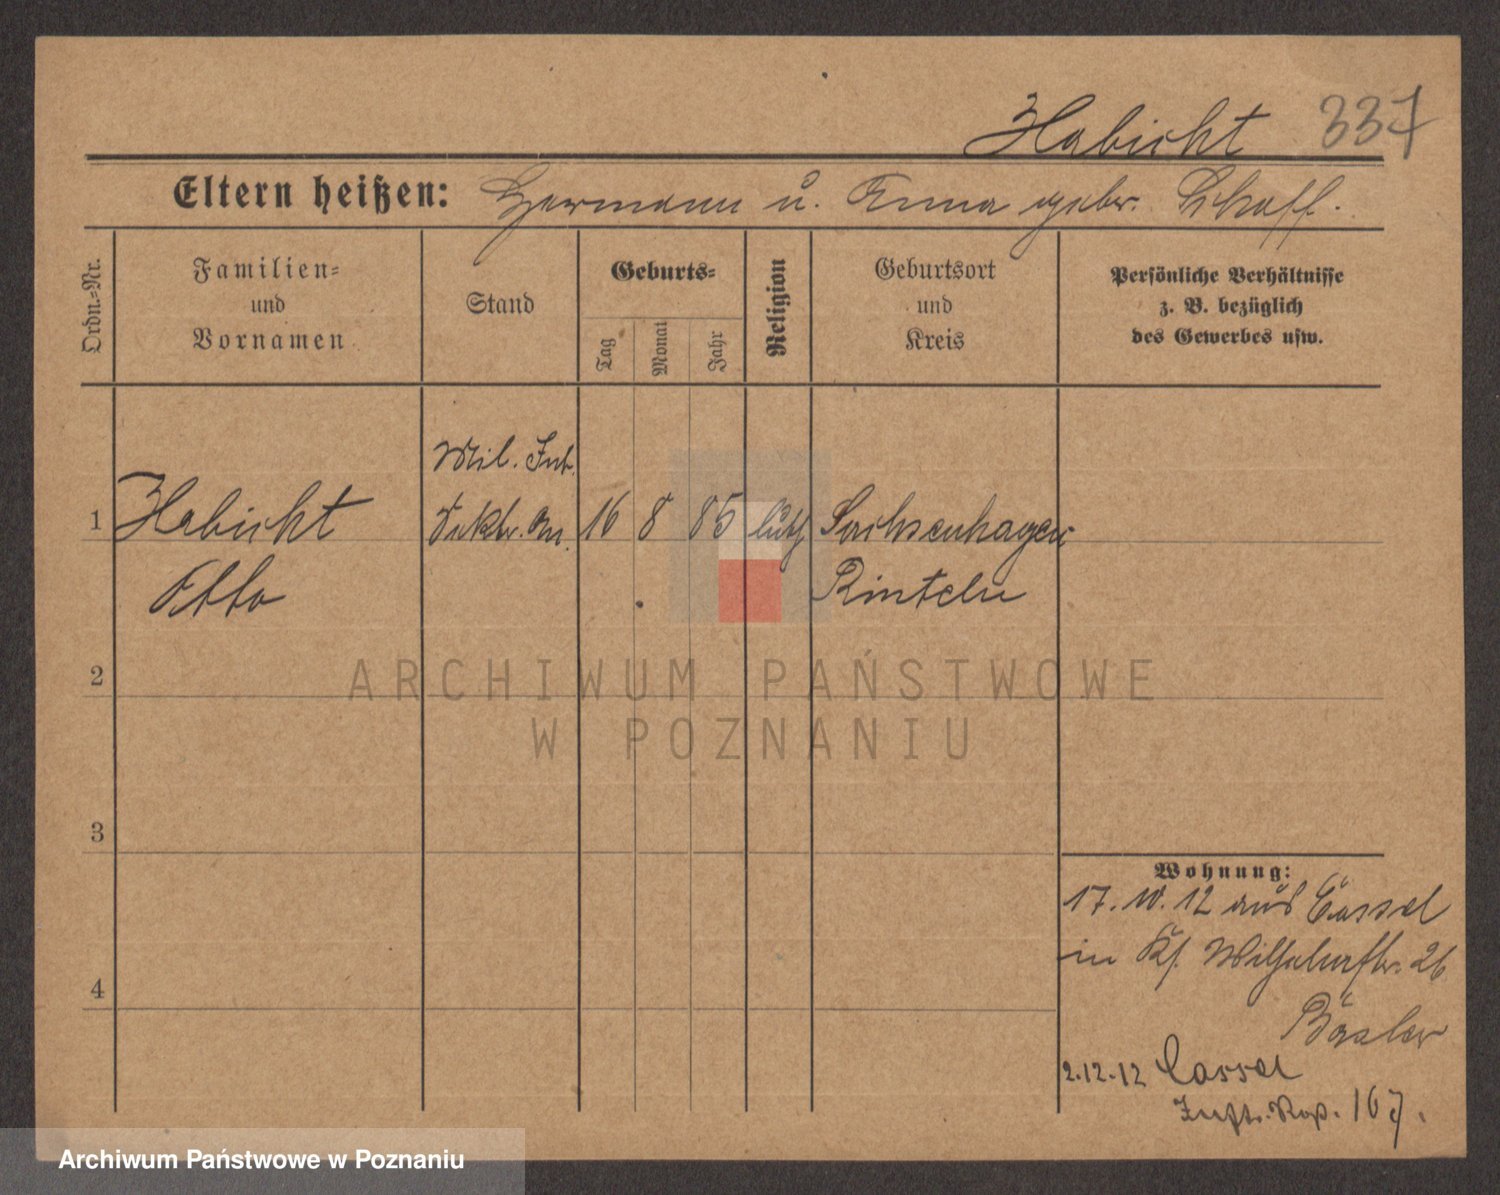 Habicht 337
Eltern heißen: Hermann u. Anna gebr. Schaff.
Ordn.=Nr.
Familien=
und
Vornamen
Stand
Geburts=
Tag
Monat
Jahr
Religion
Geburtsort
und
Kreis
Persönliche Verhältnisse
z. B. bezüglich
des Gewerbes usw.
Mil. Int.
1 Habicht 16 8 85 luth Sachsenhagen
Otto Rinteln
2
ARCHIWUM PAŃSTWOWE
W POZNANIU
3
Wohnung:
17.10.12 aus Cassel
in 26
4
2.12.12 Cassel
167.
Archiwum Państwowe w Poznaniu